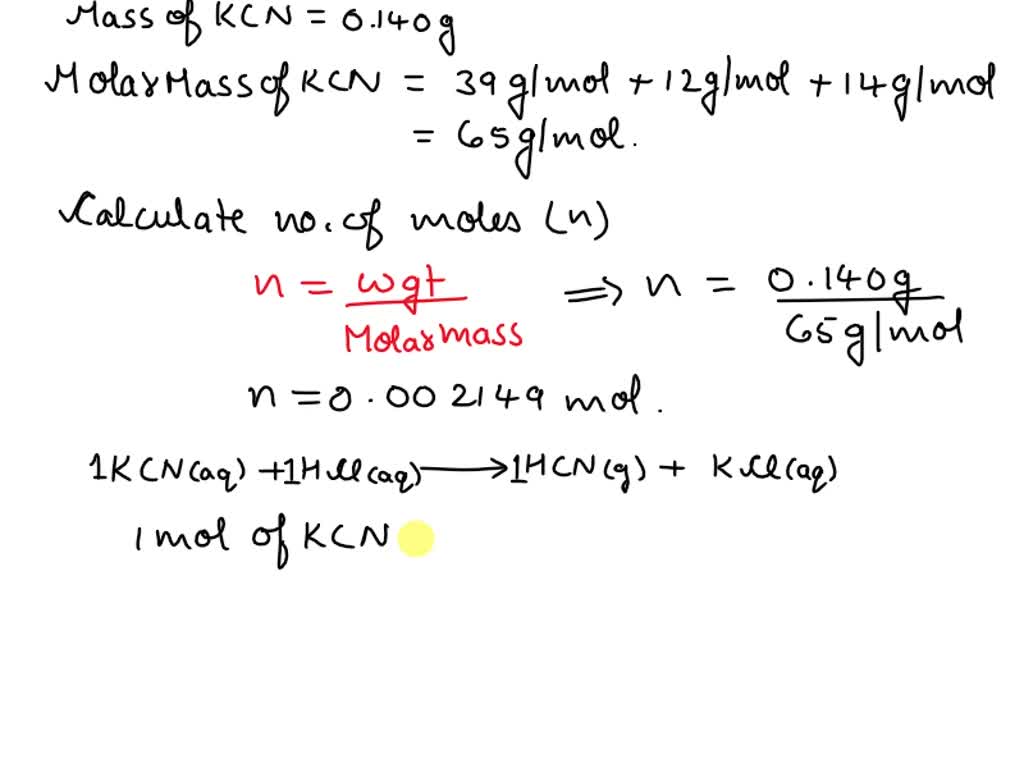 Mass of KCN = 0.140g
Molar Mass of KCN = 39g/mol + 12g/mol + 14g/mol
= 65g/mol.
Calculate no. of moles (n)
n = wgt / Molar mass ⟹ n = 0.140g / 65g/mol
n = 0.002149 mol.
1KCN(aq) + 1HCl(aq) ⟶ 1HCN(g) + KCl(aq)
1 mol of KCN